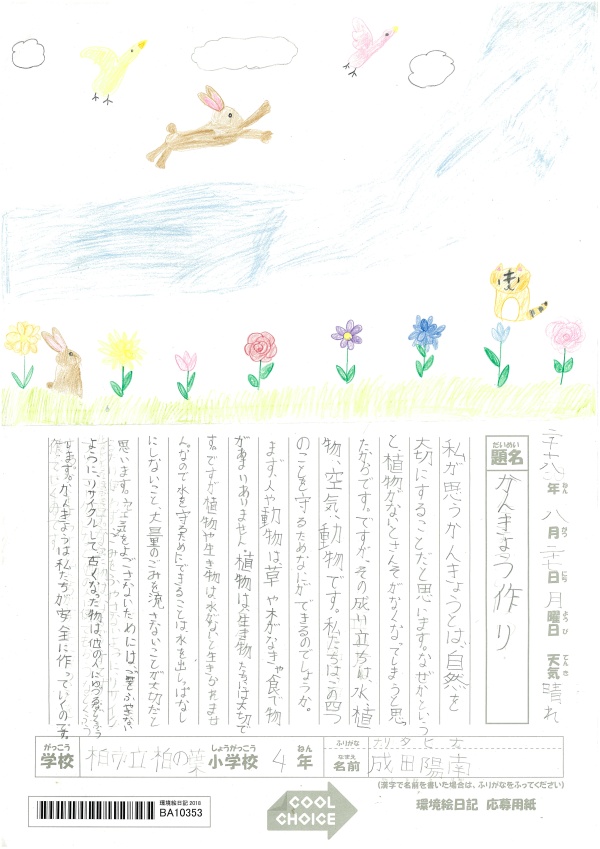 二十八年 八月 二十七日 月曜日 天気 晴れ
ねん がつ にち ようび てんき
だいめい
題名 かんきょう作り
私が思うかんきょうとは、自然を
大切にすることだと思います。なぜかという
と、植物がないとさんそがなくなってしまうと思っ
たからです。ですが、その成り立ちは、水、植
物、空気、動物、です。私たちは、この四つ
のことを守るためなにができるのでしょうか。
まず、人や動物は、草や木がなきゃ食べ物
があまりありません。植物は、生き物たちには大切で
す。ですが、植物や生き物は、水がないと生きられませ
ん。なので水を守るためにできることは、水を出しっぱなし
にしないこと、大量のごみを流さないことが大切だと
思います。空気をよごさないためには、ごみをふやさない
ように、リサイクルして古くなった物は、他の人にゆずる
ます。かんきょうは私たちが安全に作っていくのです。
がっこう
学校 柏市立柏の葉
しょうがっこう
小学校 4
ねん
年
ふりがな ナリタ ヒナ
なまえ
名前 成田陽南
(漢字で名前を書いた場合は、ふりがなをふってください)
環境絵日記 2018
BA10353
COOL CHOICE
環境絵日記 応募用紙